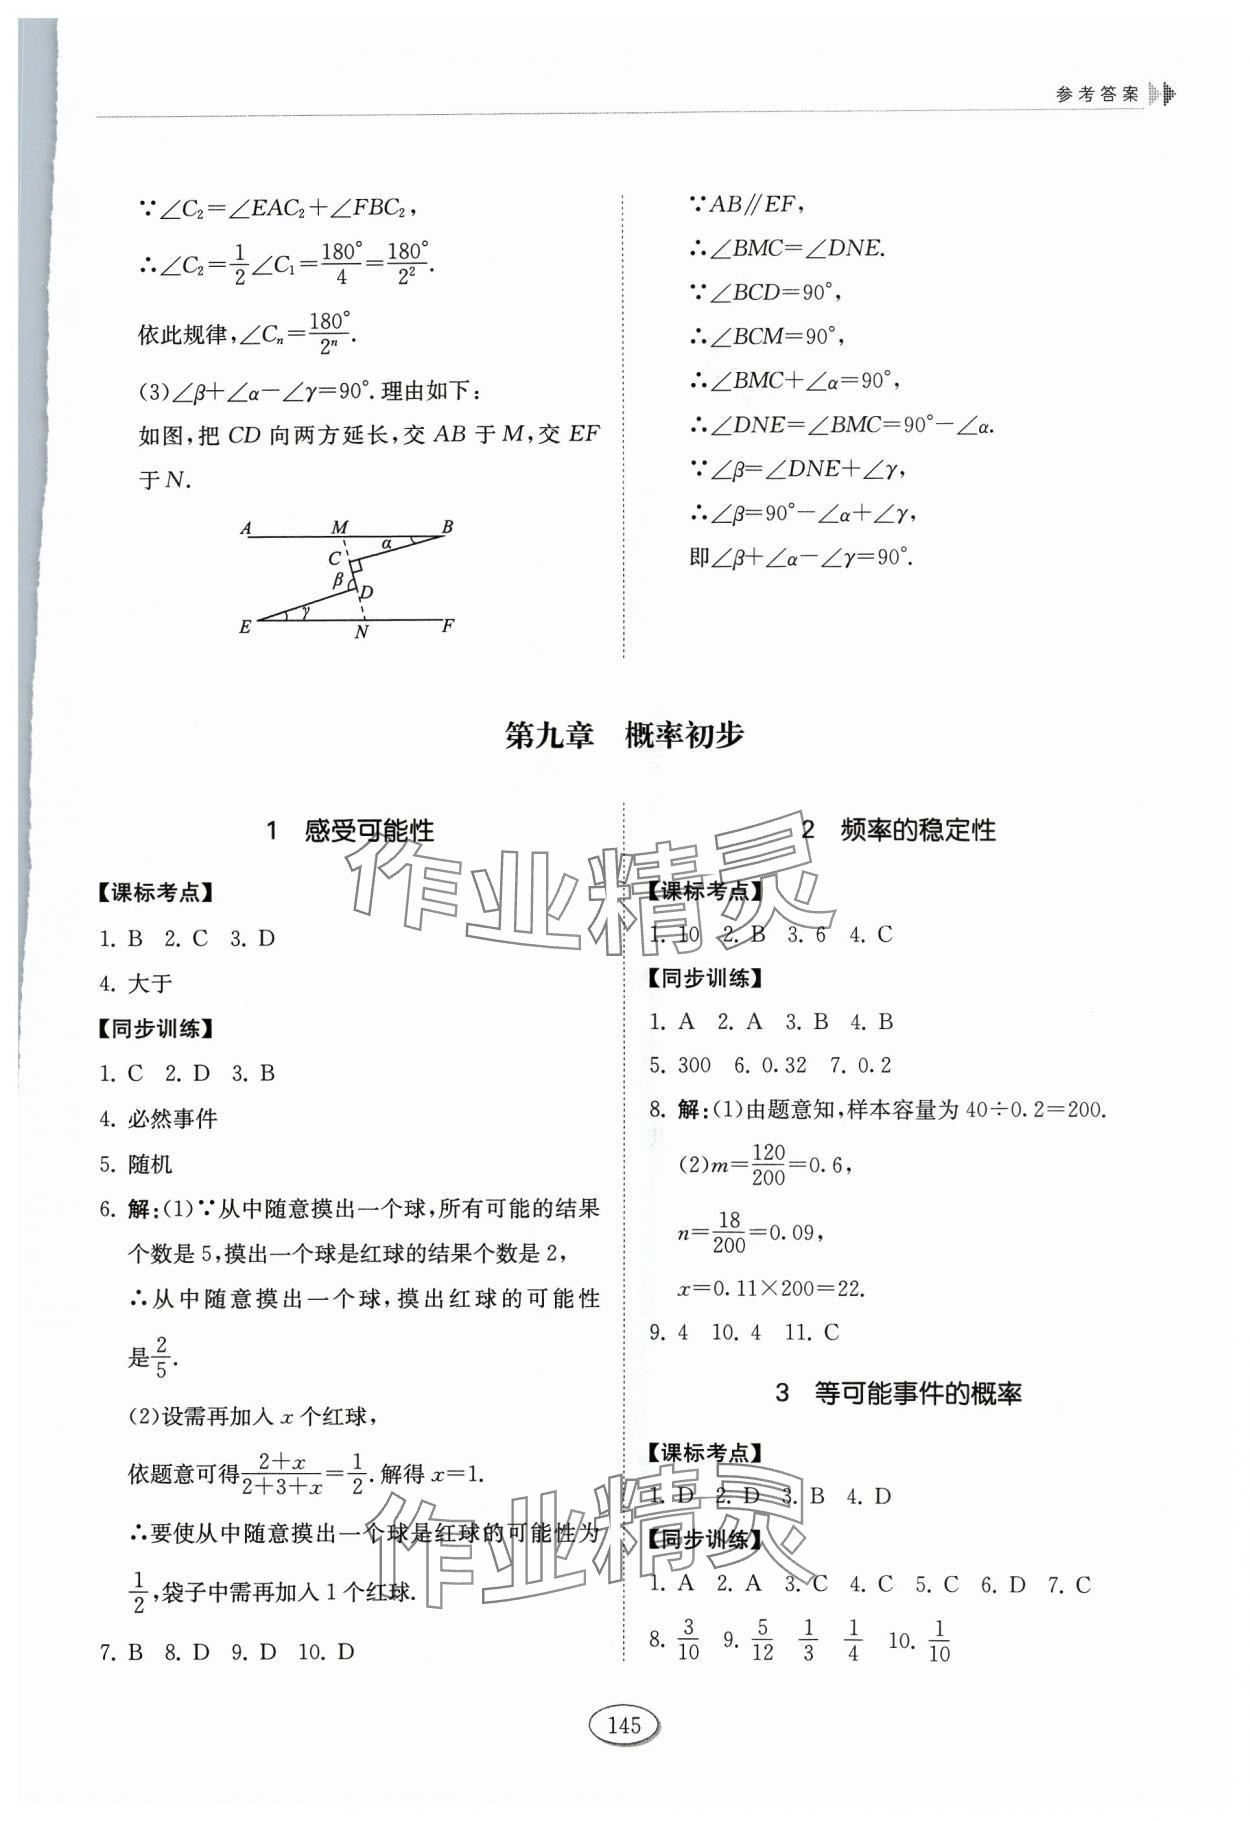 参考答案
∵∠C₂=∠EAC₂+∠FBC₂,
∴∠C₂=1/2∠C₁=180°/4=180°/2².
依此规律,∠Cₙ=180°/2ⁿ.
(3)∠β+∠α-∠γ=90°.理由如下:
如图,把 CD 向两方延长,交 AB 于 M,交 EF
于 N.
A M B
α
C
β
D
E γ N F
∵AB∥EF,
∴∠BMC=∠DNE.
∵∠BCD=90°,
∴∠BCM=90°,
∴∠BMC+∠α=90°,
∴∠DNE=∠BMC=90°-∠α.
∵∠β=∠DNE+∠γ,
∴∠β=90°-∠α+∠γ,
即∠β+∠α-∠γ=90°.
第九章 概率初步
1 感受可能性
【课标考点】
1. B 2. C 3. D
4. 大于
【同步训练】
1. C 2. D 3. B
4. 必然事件
5. 随机
6. 解:(1)∵从中随意摸出一个球,所有可能的结果
个数是 5,摸出一个球是红球的结果个数是 2,
∴从中随意摸出一个球,摸出红球的可能性
是2/5.
(2)设需再加入 x 个红球,
依题意可得(2+x)/(2+3+x)=1/2.解得 x=1.
∴要使从中随意摸出一个球是红球的可能性为
1/2,袋子中需再加入 1 个红球.
7. B 8. D 9. D 10. D
2 频率的稳定性
【课标考点】
1. 10 2. B 3. 6 4. C
【同步训练】
1. A 2. A 3. B 4. B
5. 300 6. 0.32 7. 0.2
8. 解:(1)由题意知,样本容量为 40÷0.2=200.
(2)m=120/200=0.6,
n=18/200=0.09,
x=0.11×200=22.
9. 4 10. 4 11. C
3 等可能事件的概率
【课标考点】
1. D 2. D 3. B 4. D
【同步训练】
1. A 2. A 3. C 4. C 5. C 6. D 7. C
8. 3/10 9. 5/12 1/3 1/4 10. 1/10
145
作业精灵
作业精灵